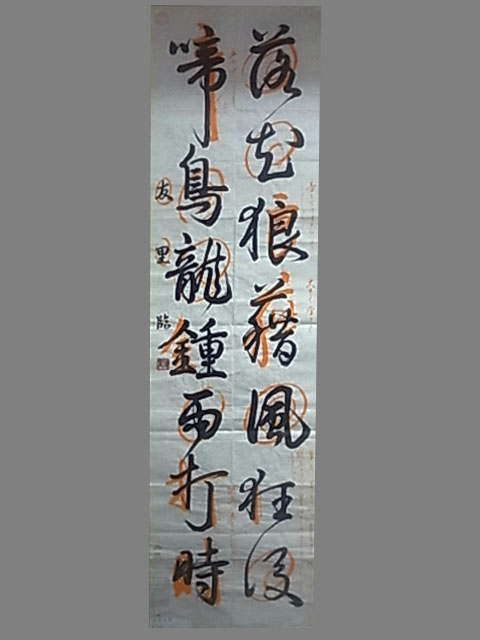 落花狼藉風狂後
啼鳥龍鍾雨打時
友里臨